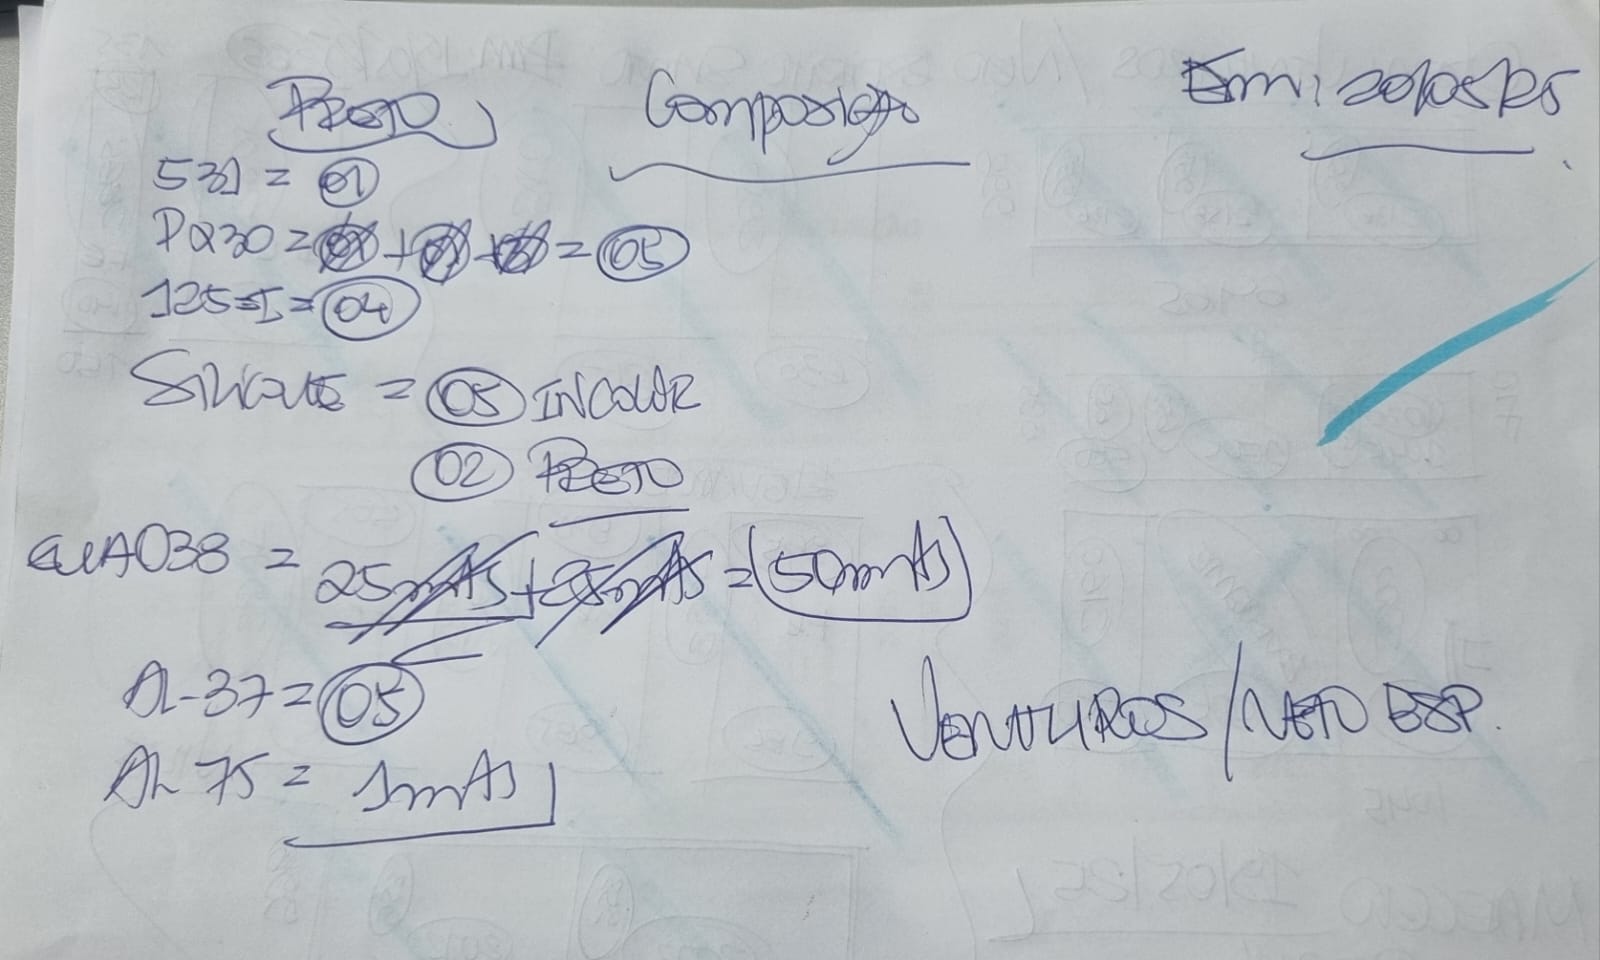 PRETO Composição Em: 20/05/25
531 = 01
PQ30 = = 05
125-I = 04
SILICONE = 05 INCOLOR
02 PRETO
GUA038 = 25mts + 25mts = 50mts
AL-37 = 05
VENTUROS / NETO ESP.
AL 75 = 1mts